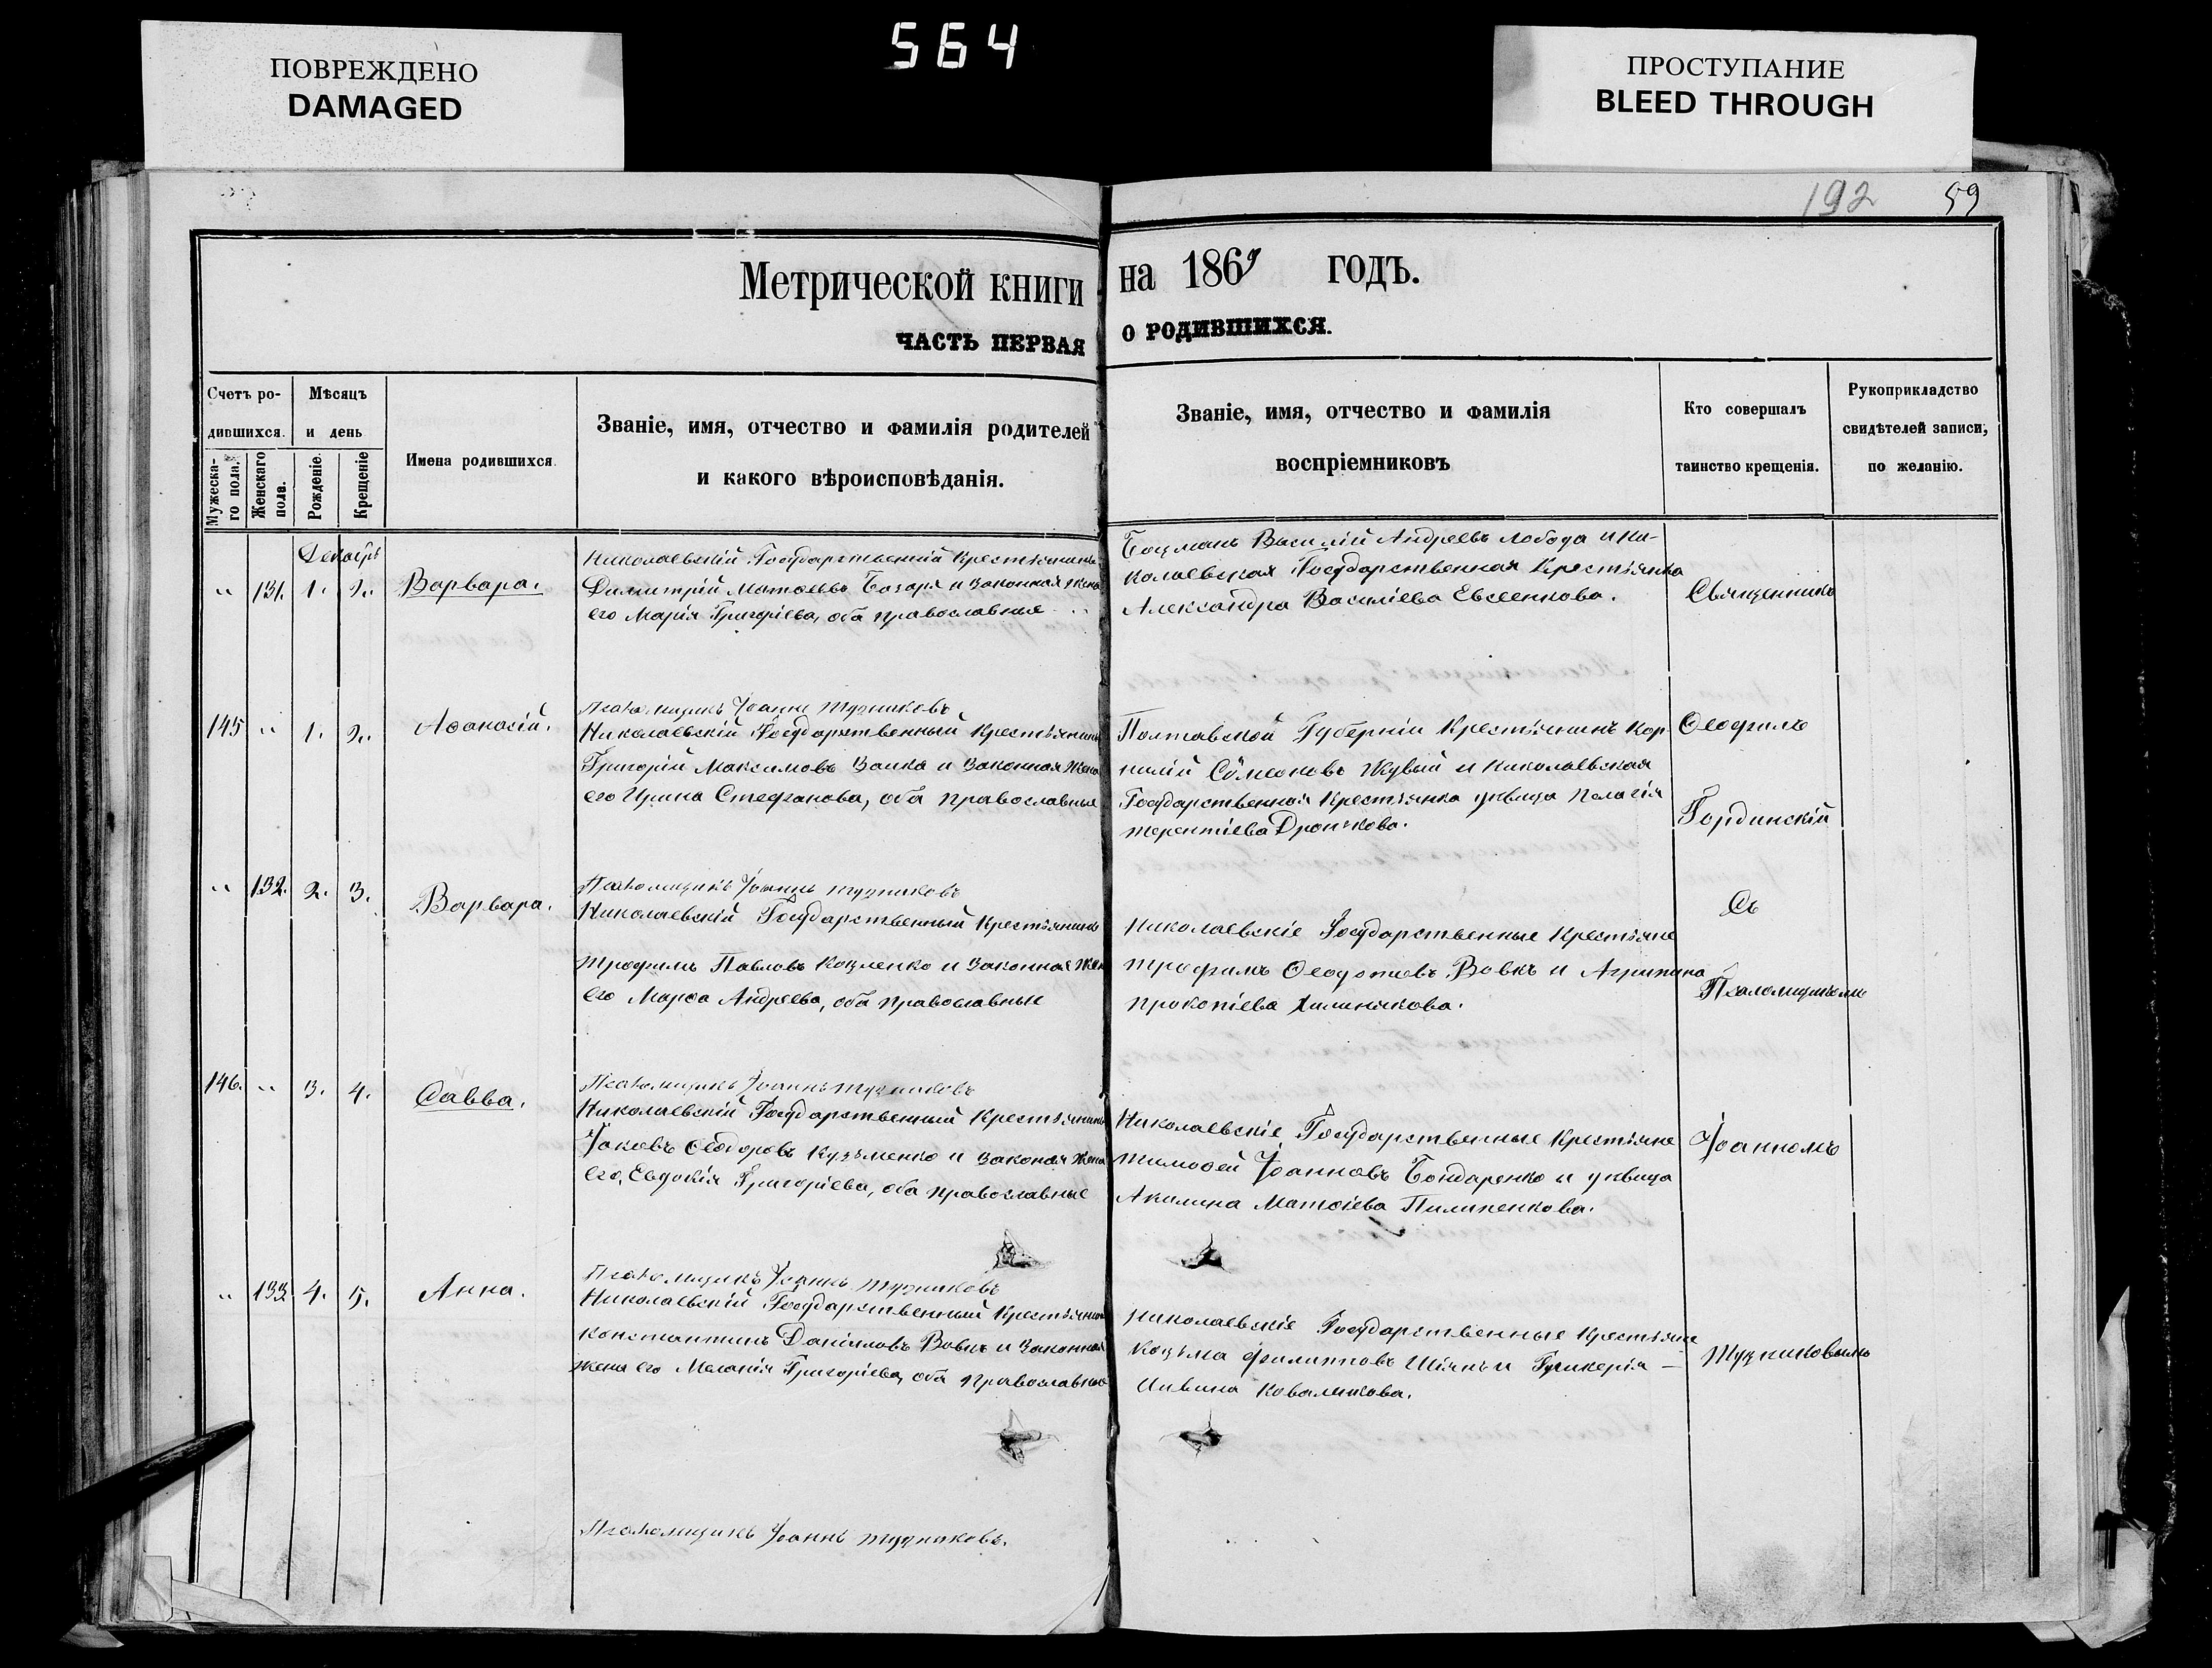 564
ПОВРЕЖДЕНО
DAMAGED
ПРОСТУПАНИЕ
BLEED THROUGH
192 59
Метрической книги на 1869 годъ.
ЧАСТЬ ПЕРВАЯ О РОДИВШИХСЯ.
Счетъ родившихся.
Мужескаго пола.
Женскаго пола.
Мѣсяцъ и день
Рожденіе.
Крещеніе
Имена родившихся.
Званіе, имя, отчество и фамилія родителей
и какого вѣроисповѣданія.
Званіе, имя, отчество и фамилія
воспріемниковъ
Кто совершалъ
таинство крещенія.
Рукоприкладство
свидѣтелей записи,
по желанію.
Декабрь
" 131. 1. 2. Варвара.
Николаевскій Государственный Крестьянинъ
Димитрій Матѳеевъ и законная жена
его Марія Григоріева, оба православные
Боцманъ Василій Андреевъ Лобода и Ни-
колаевская Государственная Крестьянка
Александра Василіева Евсеенкова.
Священникъ
Псаломщикъ Іоаннъ Тузниковъ
145 " 1. 2. Аѳанасій.
Николаевскій Государственный Крестьянинъ
Григорій Максимовъ Заика и законная жена
его Ирина Стефанова, оба православные
Полтавской Губерніи Крестьянинъ Кор-
нилій Сѵмеоновъ и Николаевская
Государственная Крестьянка дѣвица Пелагія
Терентіева
Ѳеофилъ
Гординскій
Псаломщикъ Іоаннъ Тузниковъ
" 132. 2. 3. Варвара.
Николаевскій Государственный Крестьянинъ
Трофимъ Павловъ Козленко и законная жена
его Марѳа Андреева, оба православные
Николаевскіе Государственные Крестьяне
Трофимъ Ѳеодотовъ Вовкъ и Агрипина
Прокопіева
Съ
Псаломщикомъ
Псаломщикъ Іоаннъ Тузниковъ
146. " 3. 4. Савва.
Николаевскій Государственный Крестьянинъ
Іаковъ Ѳеодоровъ Кузьменко и законная жена
его, Евдокія Григоріева, оба православные
Николаевскіе Государственные Крестьяне
Тимоѳей Іоанновъ Бондаренко и дѣвица
Акилина Матѳіева Пилипенкова.
Іоанномъ
Псаломщикъ Іоаннъ Тузниковъ
" 133. 4. 5. Анна.
Николаевскій Государственный Крестьянинъ
Константинъ Даніиловъ Вовкъ и законная
жена его Меланія Григоріева, оба православные
Николаевскіе Государственные Крестьяне
Козьма Филипповъ и Гликерія
Коваленкова.
Тузниковымъ
Псаломщикъ Іоаннъ Тузниковъ.